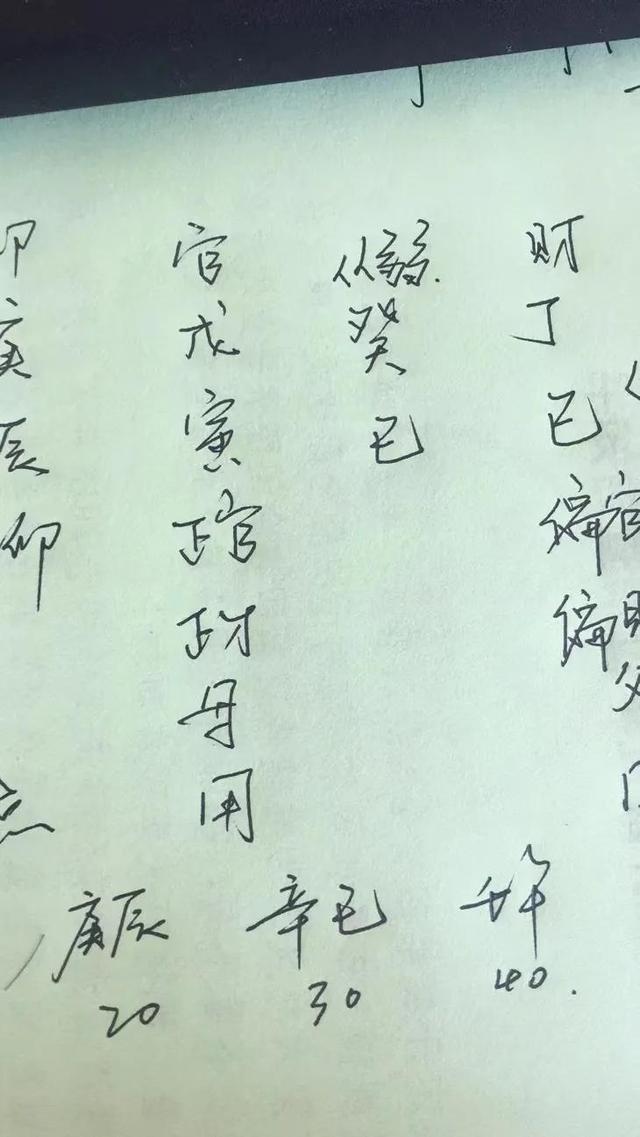 印 官 从弱. 财
庚 戊 癸 丁
辰 寅 巳 巳
正官 偏官
正财 偏财
母 父
用
庚辰 辛巳 壬午
20 30 40.